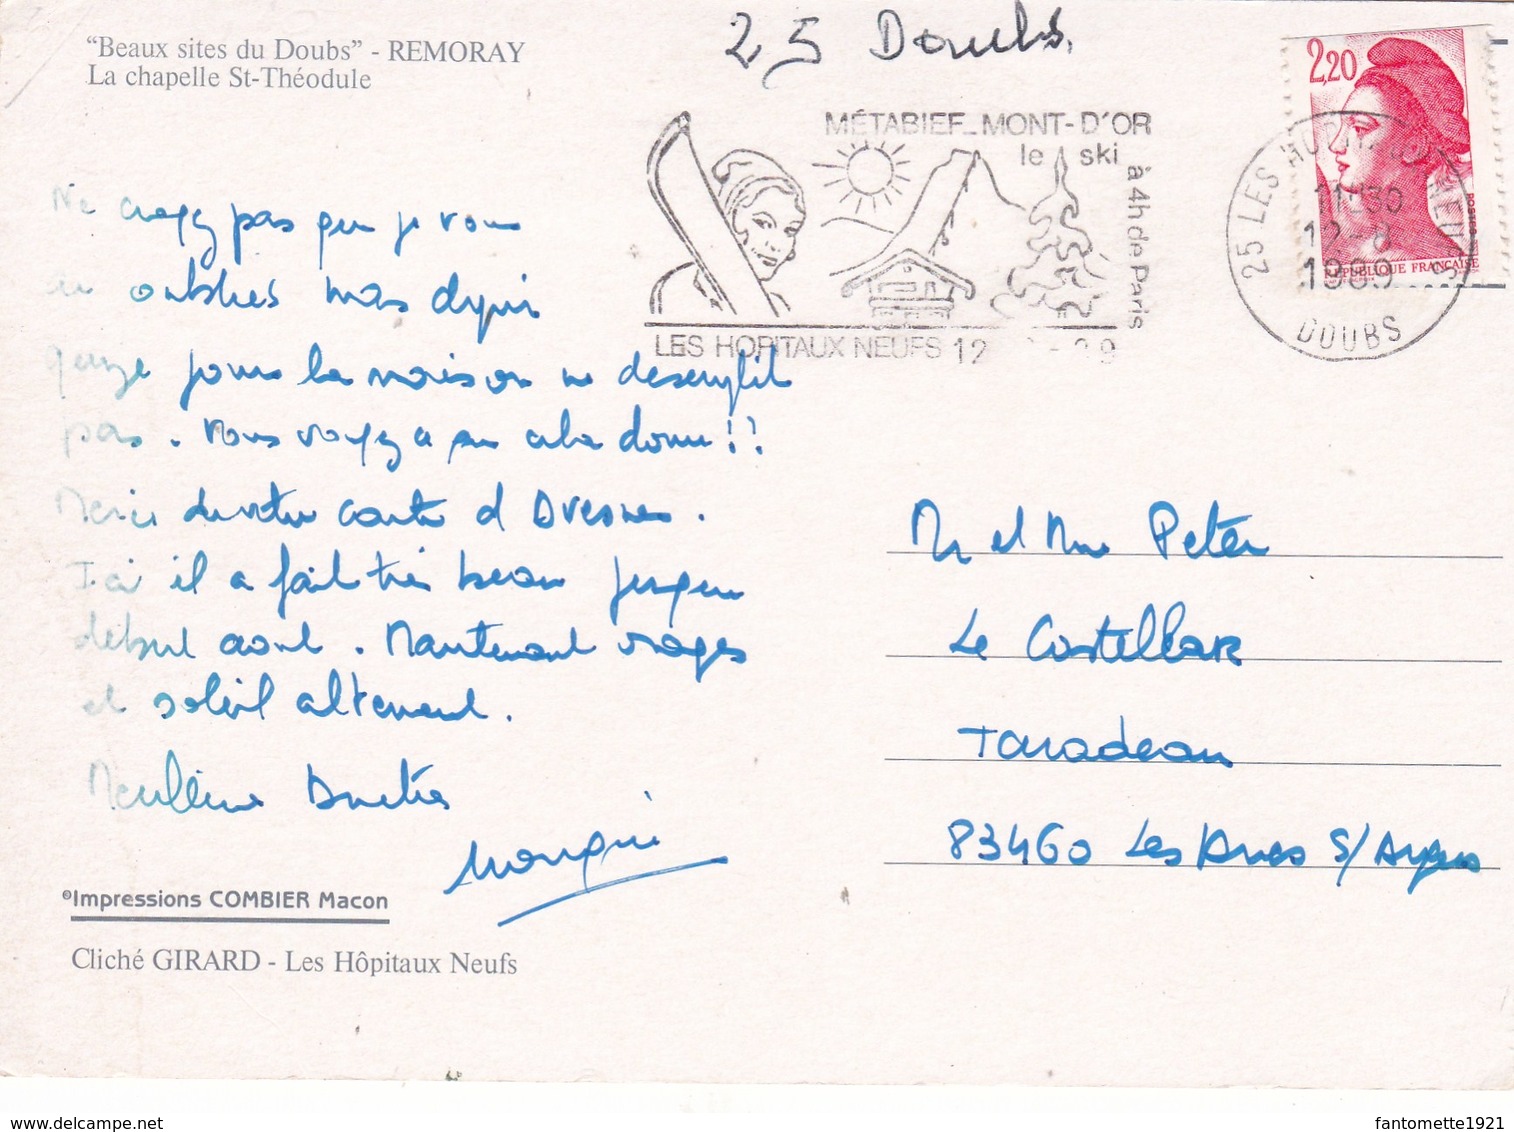 25 Doubs.
"Beaux sites du Doubs" - REMORAY
La chapelle St-Théodule
MÉTABIEF_MONT-D'OR
le ski
à 4h de Paris
LES HOPITAUX NEUFS 12
2,20
RÉPUBLIQUE FRANÇAISE
25 LES HOPITAUX NEUFS
11 30
12-8
1989
DOUBS
Ne croyez pas que je vous
ai oubliés mais depuis
quinze jours la maison ne desemplit
pas. Vous voyez a
Merci de votre carte d
Ici il a fait très beau jusque
début août. Maintenant orages
et soleil alternent.
Mr et Mme Peter
Le Castellar
Taradeau
83460 Les Arcs s/Argens
©Impressions COMBIER Macon
Cliché GIRARD - Les Hôpitaux Neufs
fantomette1921